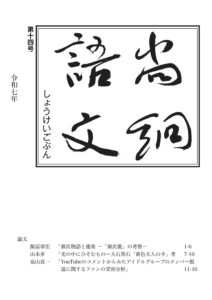 第十四号
尚絅
語文
しょうけいごぶん
令和七年
論文
『源氏物語と の考察― 1-6
山本歩 「光の中にひそむもの 黒石 夫人の手』考 7-10
畠山真一 「YouTubeのコメントからみたアイドルグループのメンバー脱
退に関するファンの受容分析」 11-16